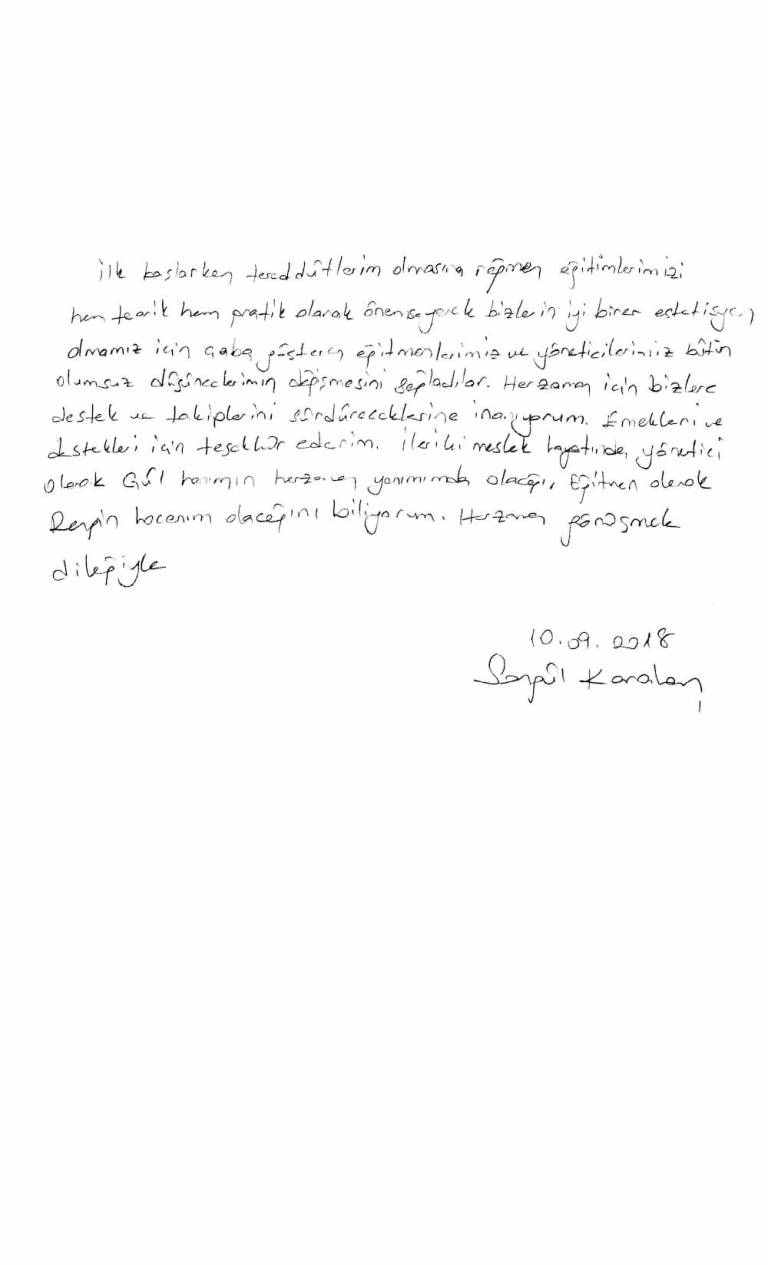 ilk başlarken tereddütlerim olmasına rağmen eğitimlerimizi
hem teorik hem pratik olarak önemseyerek bizlerin iyi birer estetisyen
olmamız için çaba gösteren eğitmenlerimiz ve yöneticilerimiz bütün
olumsuz düşüncelerimin değişmesini sağladılar. Herzaman için bizlere
destek ve takiplerini sürdüreceklerine inanıyorum. Emekleri ve
destekleri için teşekkür ederim. İleriki meslek hayatımda, yönetici
olarak Gül hanımın herzaman yanımımda olacağı, Eğitmen olarak
hocanım olacağını biliyorum. Herzaman görüşmek
dileğiyle
10.09.2018
Songül Karalan